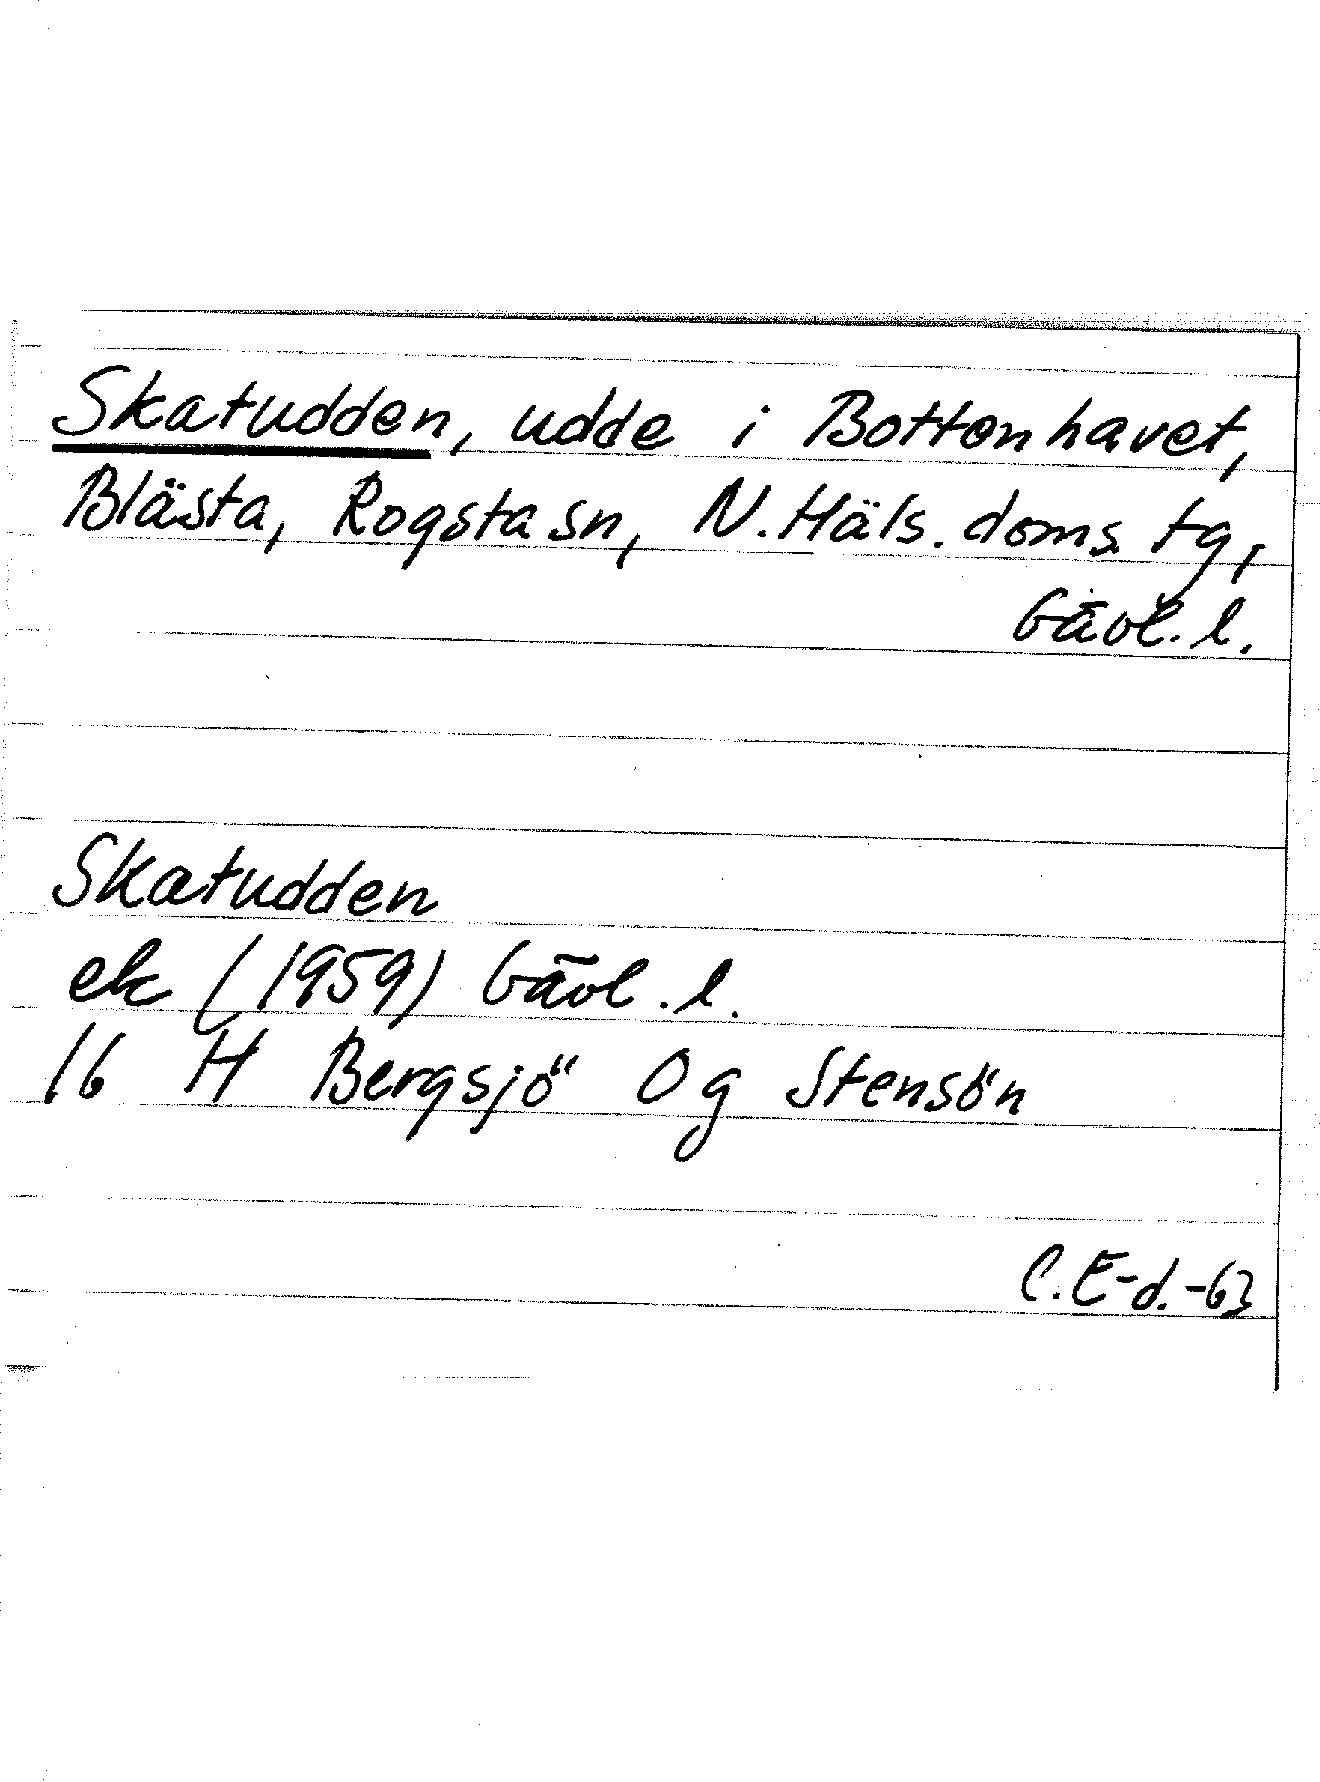 Skatudden, udde i Bottenhavet,
Blästa, Rogsta sn, N. Häls. doms. tg,
Gävl. l.
Skatudden
ek (1959) Gävl. l.
16 H Bergsjö Og Stensön
C. E-d. -63